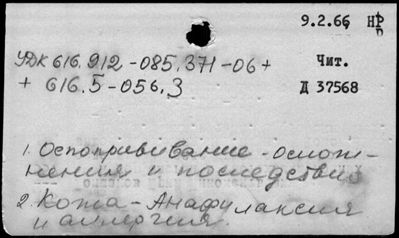 9.2.66 НР
УДК 616.912-085.371-06+
+ 616.5-056.3
Чит.
Д 37568
1. Оспопрививание - ослож-
нения и последствия
2. Кожа - Анафилаксия
и аллергия.